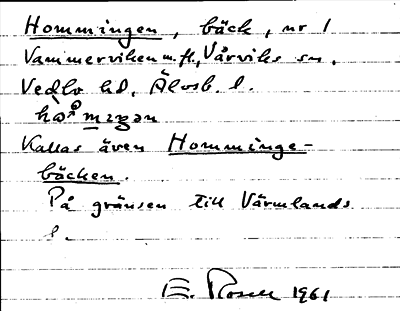 Hommingen, bäck, nr 1
Vammerviken m. fl., Vårviks sn,
Vedbo hd, Älvsb. l.
Kallas även Homminge-
bäcken.
På gränsen till Värmlands
l.
E. Rosell 1961